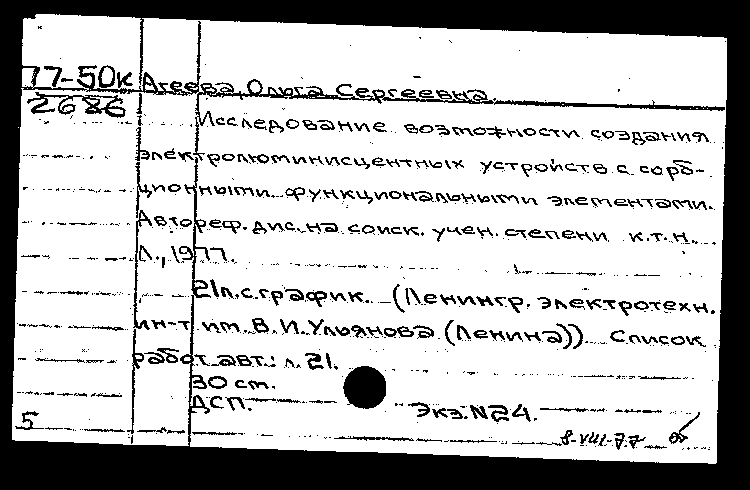 77-50к Агеева, Ольга Сергеевна.
2686
Исследование возможности создания
электролюминисцентных устройств с сорб-
ционными функциональными элементами.
Автореф. дис. на соиск. учен. степени к.т.н.
Л., 1977.
21л. с график. (Ленингр. электротехн.
ин-т им. В. И. Ульянова (Ленина)) Список
работ авт.: л. 21.
30 см.
ДСП.
Экз. №24.
5
8-VIII-77